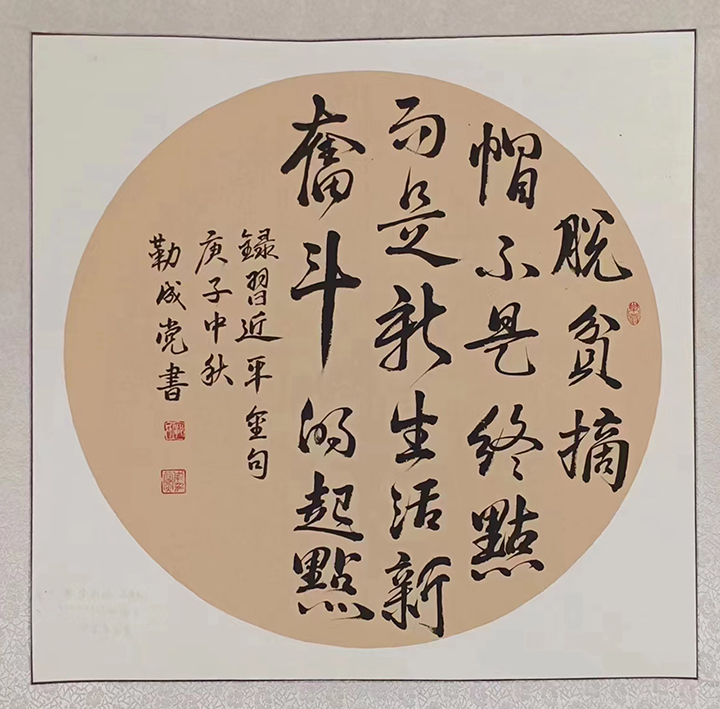 脱貧摘
帽不是終點
而是新生活新
奮斗的起點
録習近平金句
庚子中秋
勒成党書